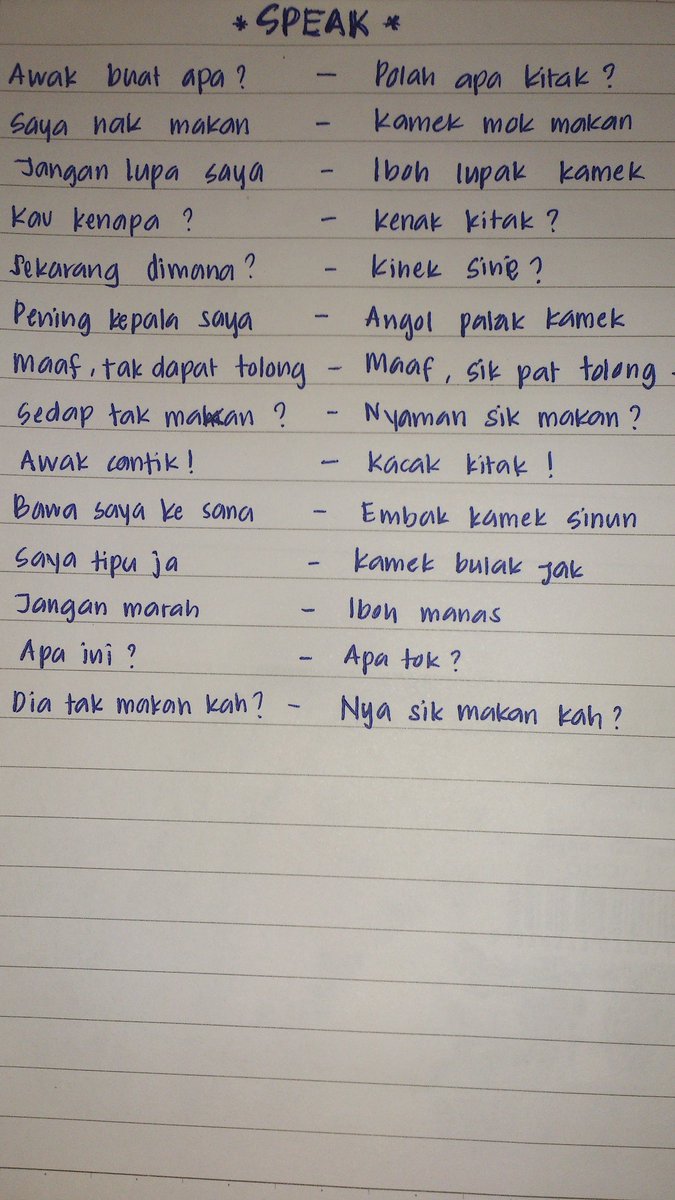 * SPEAK *
Awak buat apa? - Polah apa kitak?
Saya nak makan - Kamek mok makan
Jangan lupa saya - Iboh lupak kamek
Kau kenapa? - Kenak kitak?
Sekarang dimana? - Kinek sine?
Pening kepala saya - Angol palak kamek
Maaf, tak dapat tolong - Maaf, sik pat tolong.
Sedap tak makan? - Nyaman sik makan?
Awak cantik! - Kacak kitak!
Bawa saya ke sana - Embak kamek sinun
Saya tipu ja - Kamek bulak jak
Jangan marah - Iboh manas
Apa ini? - Apa tok?
Dia tak makan kah? - Nya sik makan kah?